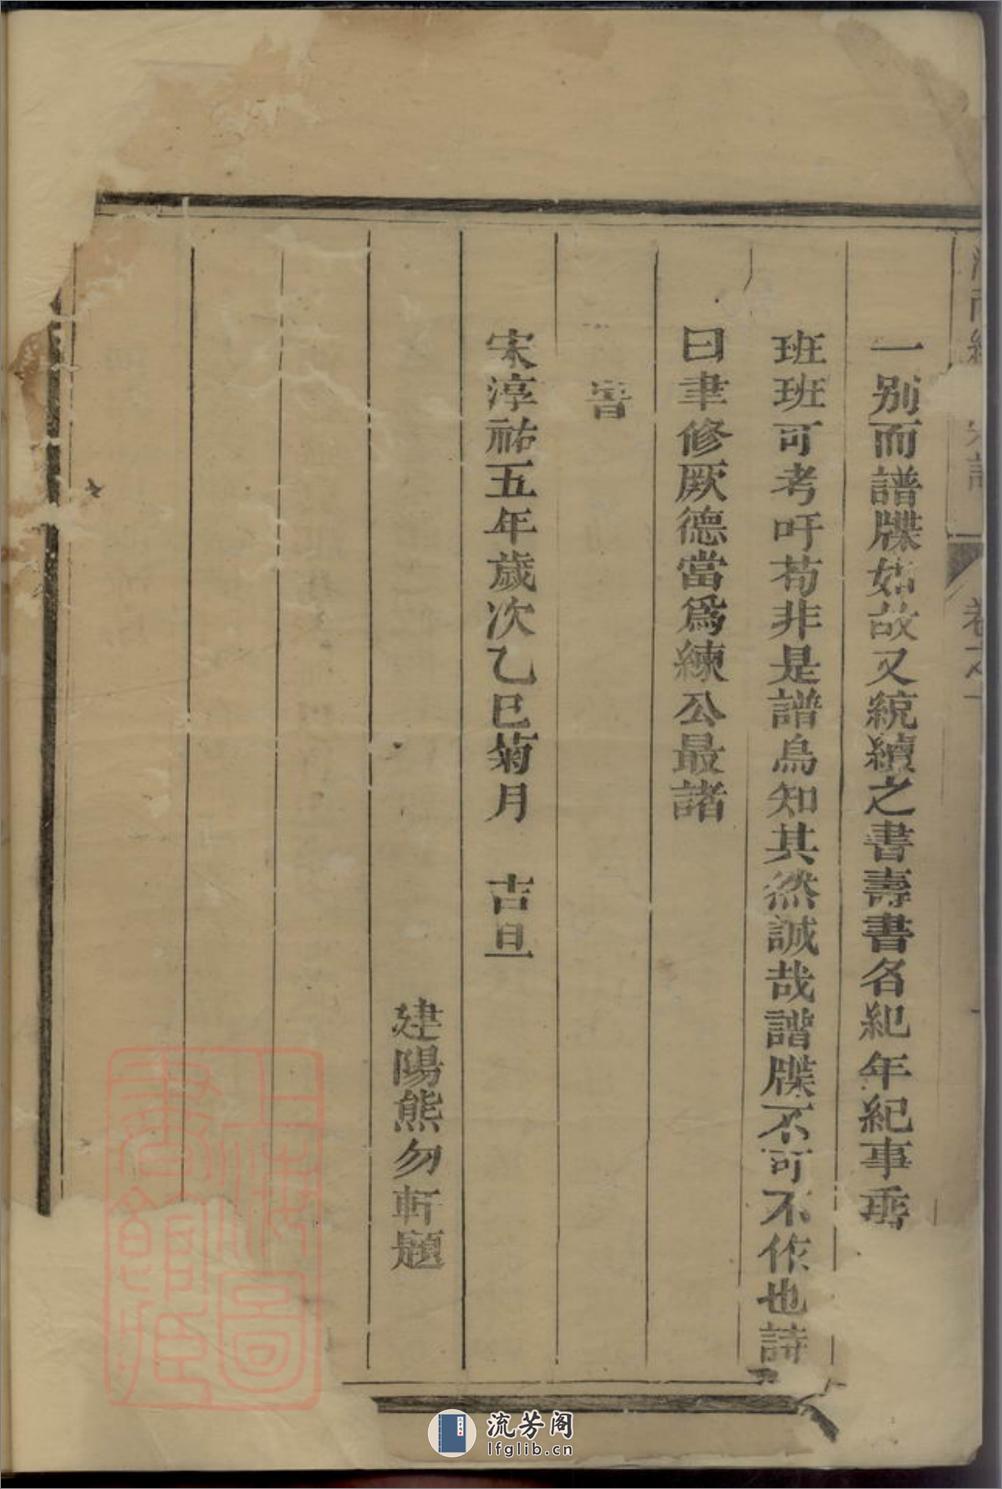 一別而譜牒如故又統續之書壽書名紀年紀事乖
班班可考吁苟非是譜烏知其然誠哉譜牒不可不作也詩
曰聿修厥德當爲練公最諸
宋淳祐五年歲次乙巳菊月 吉旦
建陽熊勿軒題
卷之
上海圖
書館藏
流芳阁
lfglib.cn